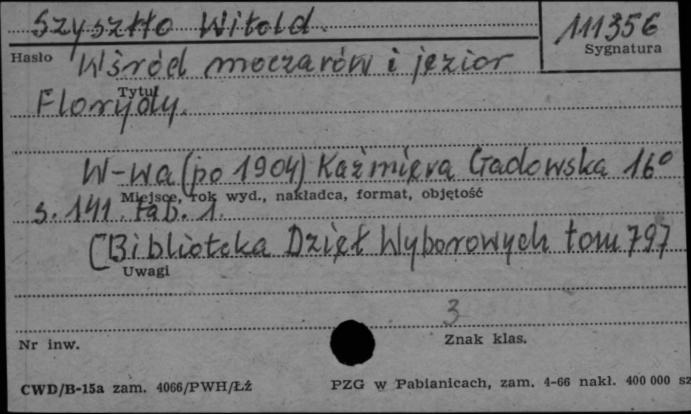 Szyszłło Witold.
111356
Hasło
Sygnatura
Wśród moczarów i jezior
Tytuł
Florydy.
W-wa (po 1904) Kaźmiera Gadowska 16°
Miejsce, rok wyd., nakładca, format, objętość
s. 141. tab. 1.
[Biblioteka Dzieł Wyborowych tom 797
Uwagi
3
Nr inw.
Znak klas.
CWD/B-15a zam. 4066/PWH/ŁŹ
PZG w Pabianicach, zam. 4-66 nakł. 400 000 sz